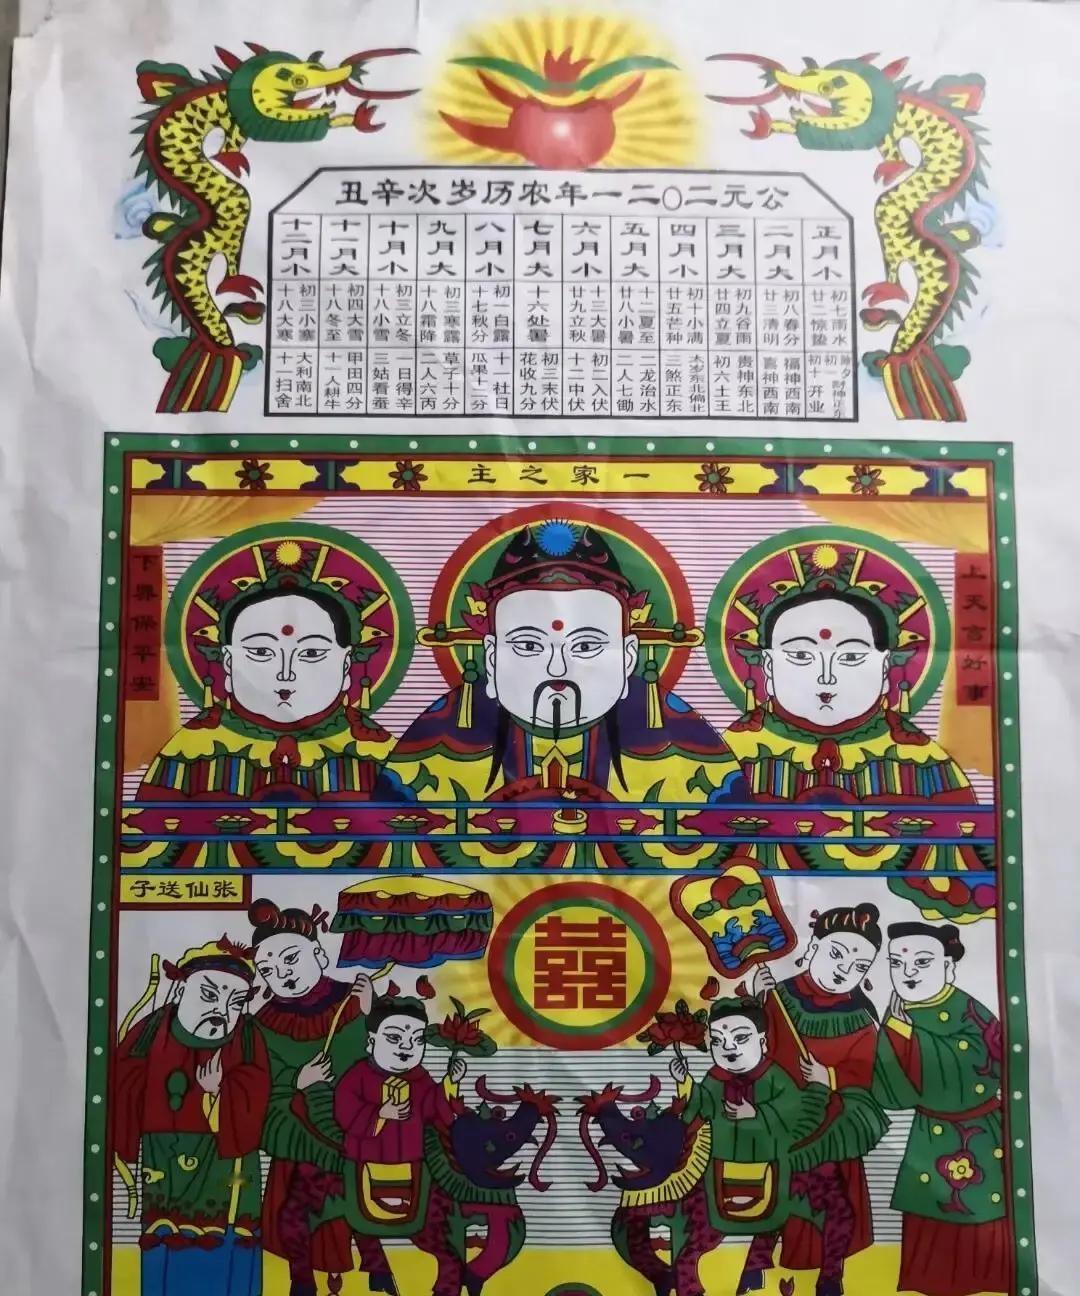 公元二〇二一年农历岁次辛丑
正月小
初七雨水
廿二惊蛰
除夕
初一
财神正东
初十
开业
二月大
初八春分
廿三清明
福神西南
喜神西南
三月大
初九谷雨
廿四立夏
贵神东北
初六土王
四月小
初十小满
廿五芒种
太岁东北偏北
三煞正东
五月大
十二夏至
廿八小暑
二龙治水
二人七锄
六月小
十三大暑
廿九立秋
初二入伏
十二中伏
七月大
十六处暑
初三末伏
花收九分
八月小
初一白露
十七秋分
十一社日
瓜果十二分
九月大
初三寒露
十八霜降
草子十分
二人六丙
十月小
初三立冬
十八小雪
一日得辛
三姑看蚕
十一月大
初四大雪
十八冬至
甲田四分
十一人耕牛
十二月小
初三小寒
十八大寒
大利南北
十一扫舍
一家之主
上天言好事
下界保平安
张仙送子
囍